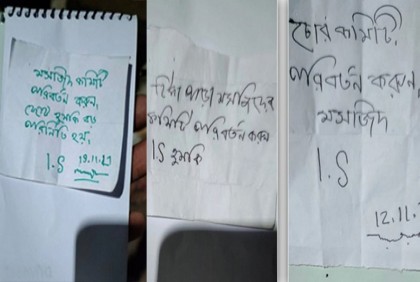 মসজিদ কমিটি
পরিবর্তন করুন,
শেষে হুমকি বড়
পরিনিতি হবে,
I.S 12.11.23
পাড়া মসজিদের
কমিটি পরিবর্তন করুন
I S হুমকি
চোর কমিটি,
পরিবর্তন করুন,
মসজিদ
I.S
12.11.